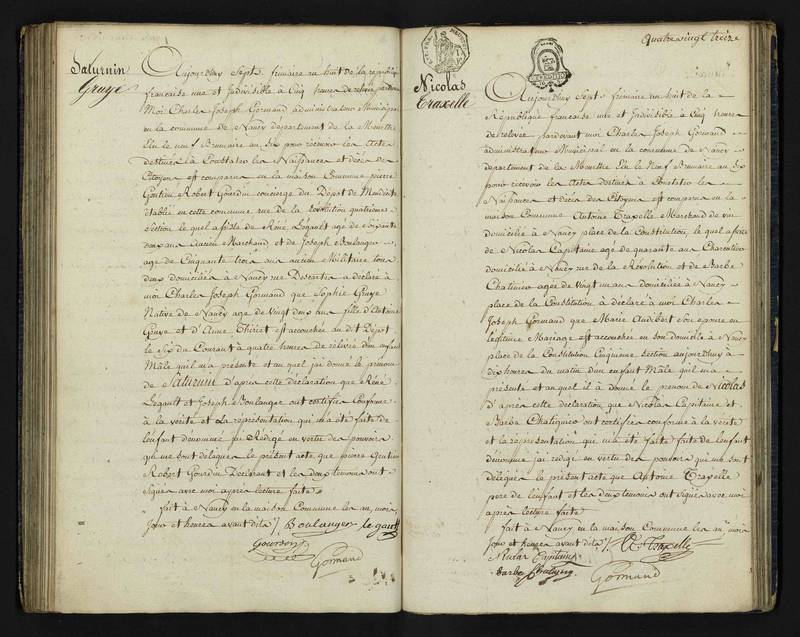 Saturnin
Gruye
Aujourdhuy Sept frimaire an huit de la republique
francaise une et Indivisible à Cinq heures de relevée pardevant
Moi Charles Joseph Gormand administrateur Municipal
en la commune de Nancy département de la Meurthe
Elu le neuf Brumaire an Six pour recevoir les Actes
destinés à Constater les Naissances et décès des
Citoyens est comparu en la maison Commune pierre
Gentien Robert Gourdin concierge du Dépot de Mendicité
établie en cette commune rue de la révolution quatrieme
Section, le quel assisté de Réné Legault agé de Soixante
douze ans ancien Marchand et de Joseph Boulanger
age de Cinquante trois ans ancien Militaire tous
deux domiciliés à Nancy rue Descartes a déclaré à
moi Charles Joseph Gormand que Sophie Gruye
Native de Nancy age de Vingt deux ans fille d'Antoine
Gruye et d'Anne Thiriet est accouchée au dit Dépot
le Six du Courant à quatre heures de relévée d'un enfant
Male qu'il ma présenté et auquel jai donné le prenom
de Saturnin d'après cette déclaration que Réné
Legault et Joseph Boulanger ont certifiés Conforme
à la verité et la représentation qui ma été faite de
lenfant dénommé jai Rédigé en vertu des pouvoirs
qui me sont délégués le présent acte que pierre Gentien
Robert Gourdin Déclarant et les deux temoins ont
signés avec moi après lecture faite
fait à Nancy en la maison Commune les an, mois,
Jour et heures avant dits /. Boulanger legault
Gourdin
Gormand
Quatre vingt treize
Nicolas
Traxelle
Aujourdhuy Sept frimaire an huit de la
République francaise une et Indivisible à Cinq heures
de relevée pardevant moi Charles Joseph Gormand
administrateur Municipal en la commune de Nancy
département de la Meurthe Elu le Neuf Brumaire an Six
pour recevoir les Actes destinés à Constater les
Naissances et décès des Citoyens est comparu en la
maison Commune Antoine Traxelle Marchand de vin
domicilié à Nancy place de la Constitution, le quel assisté
de Nicolas Capitaine agé de quarante ans Charcutier
domicilié à Nancy rue de la Révolution et de Barbe
Chatignier agée de Vingt un ans domiciliée à Nancy
place de la Constitution à déclaré à moi Charles
Joseph Gormand que Marie Audibert Son epouse en
legitime Mariage est accouchée en son domicile à Nancy
place de la Constitution Cinquieme Section aujourdhuy à
dix heures du matin d'un enfant Mâle qu'il ma
présenté et auquel il à donné le prenom de Nicolas
d'après cette déclaration que Nicolas Capitaine et
Barbe Chatignier ont certifiés conforme à la verité
et la représentation qui ma été faite faite de lenfant
dénommé jai redigé en vertu des pouvoirs qui me sont
délégués le présent acte que Antoine Traxelle
pere de l'enfant et les deux temoins ont signés avec moi
après lecture faite
fait à Nancy en la maison Commune les an, mois
Jour et heures avant dits /. A Traxelle
Nicolas Capitaine
Barbe Chatignier
Gormand